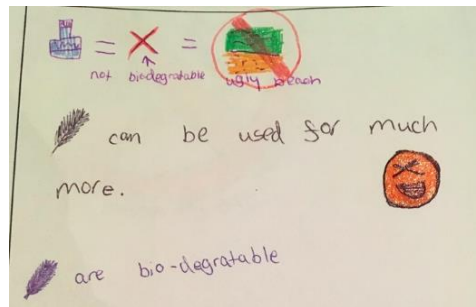 = X =
not biodegratable ugly beach
can be used for much
more.
are bio-degratable